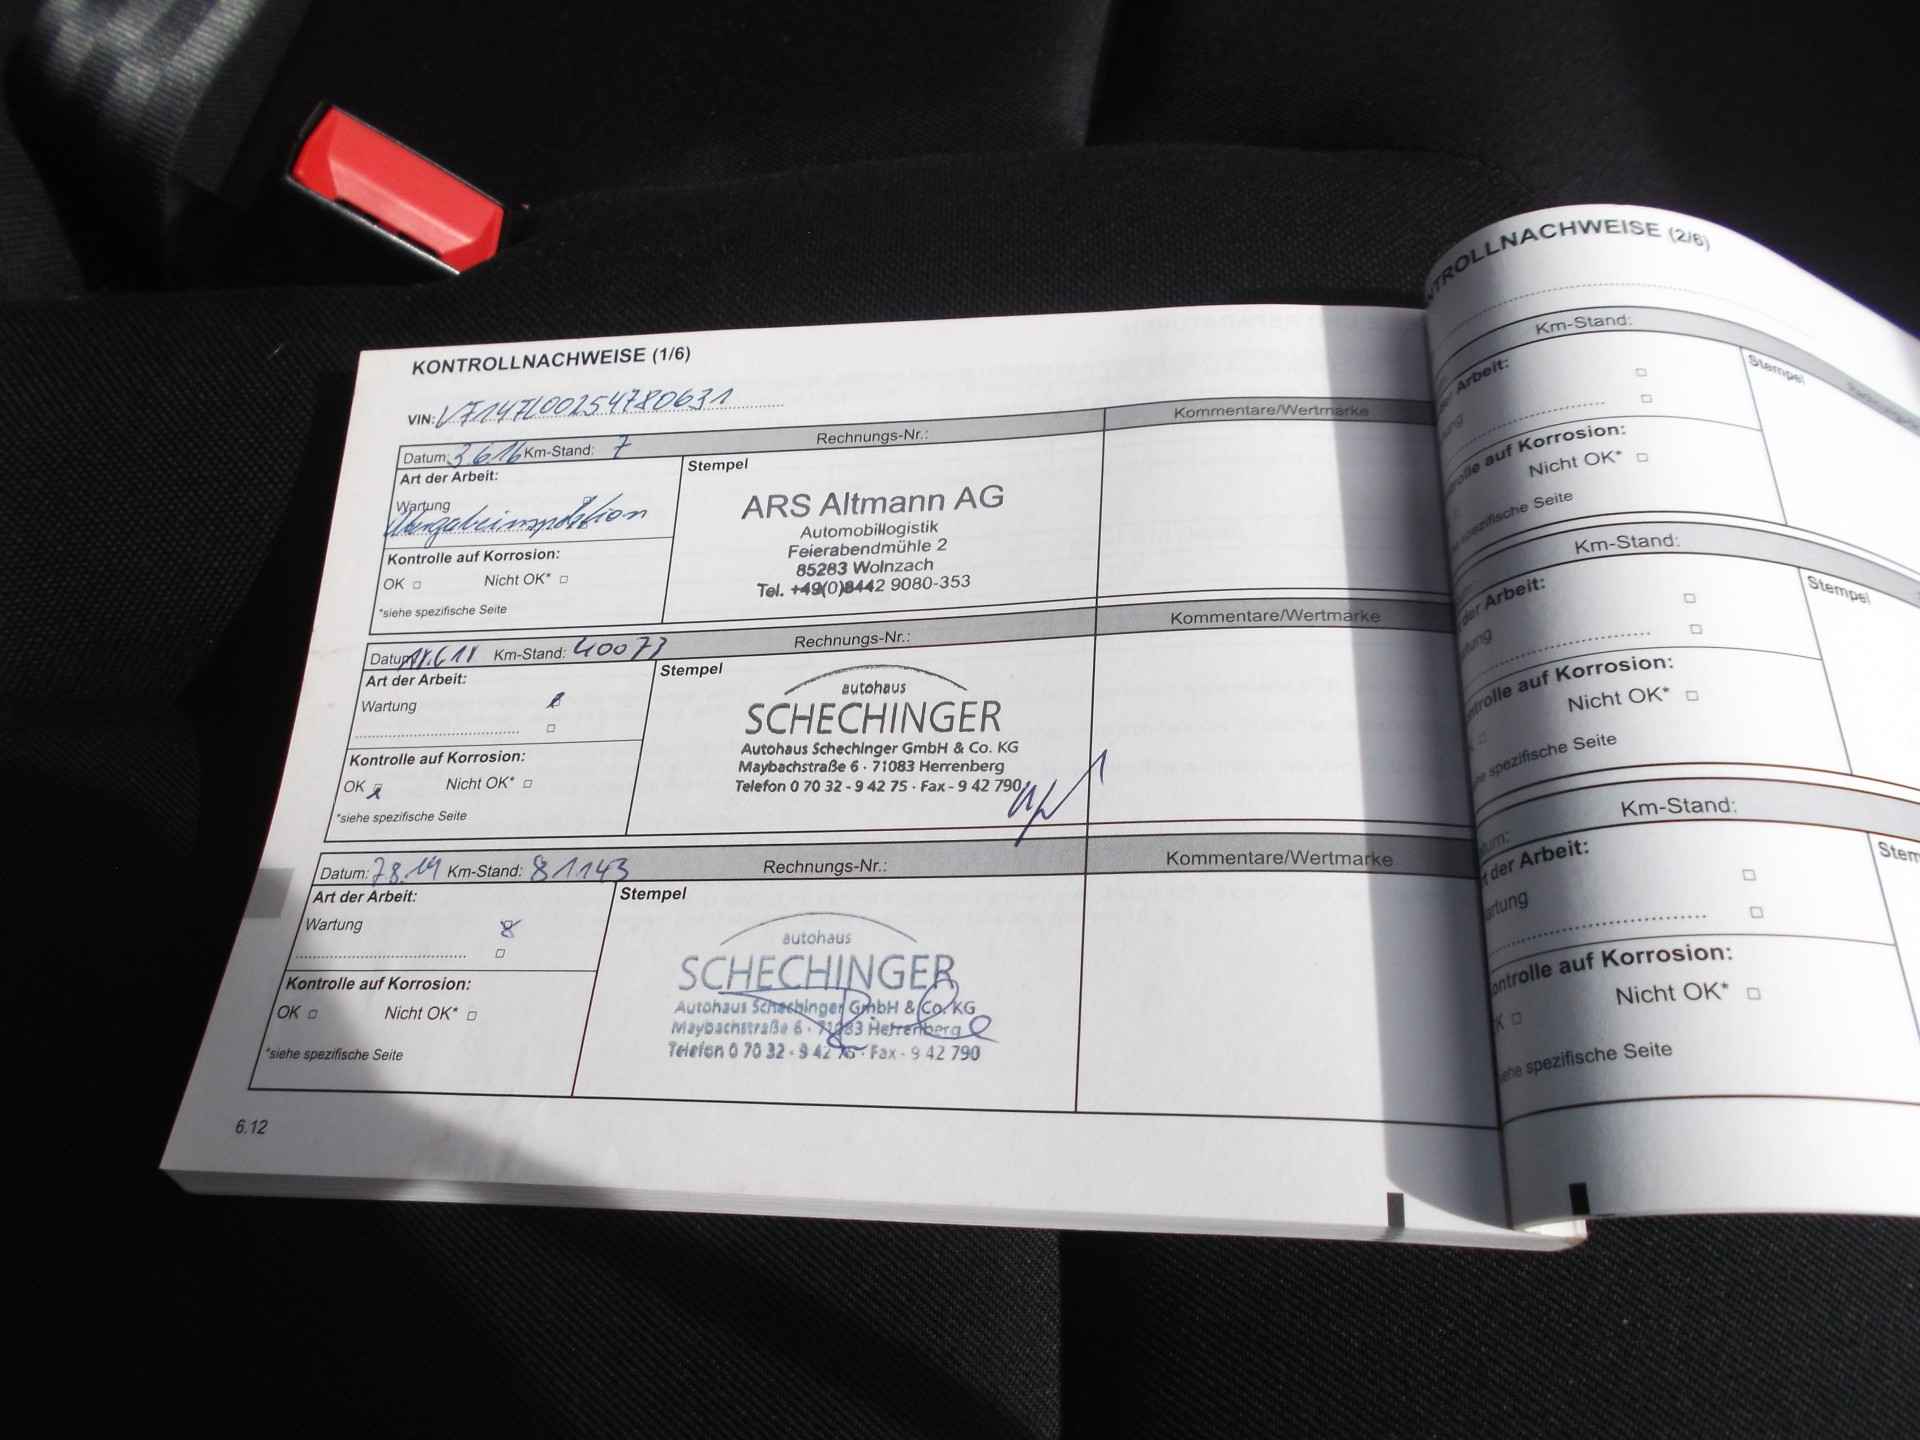 KONTROLLNACHWEISE (1/6)
VIN:
Datum: 3.6.16 Km-Stand: 7 Rechnungs-Nr.: Kommentare/Wertmarke
Art der Arbeit:
Stempel
Wartung
Übergabeinspektion
ARS Altmann AG
Automobillogistik
Feierabendmühle 2
85283 Wolnzach
Tel. +49(0)8442 9080-353
Kontrolle auf Korrosion:
OK Nicht OK*
*siehe spezifische Seite
Datum Km-Stand: 40073 Rechnungs-Nr.: Kommentare/Wertmarke
Art der Arbeit:
Stempel
Wartung
autohaus
SCHECHINGER
Autohaus Schechinger GmbH & Co. KG
Maybachstraße 6 · 71083 Herrenberg
Telefon 0 70 32 - 9 42 75 · Fax - 9 42 790
Kontrolle auf Korrosion:
OK Nicht OK*
*siehe spezifische Seite
Datum: 7.8.19 Km-Stand: 81143 Rechnungs-Nr.: Kommentare/Wertmarke
Art der Arbeit:
Stempel
Wartung
autohaus
SCHECHINGER
Autohaus Schechinger GmbH & Co. KG
Maybachstraße 6 · 71083 Herrenberg
Telefon 0 70 32 - 9 42 75 · Fax - 9 42 790
Kontrolle auf Korrosion:
OK Nicht OK*
*siehe spezifische Seite
6.12
NTROLLNACHWEISE (2/6)
Km-Stand:
Arbeit:
Stempel
Kontrolle auf Korrosion:
Nicht OK*
spezifische Seite
Km-Stand:
der Arbeit:
Stempel
ntrolle auf Korrosion:
Nicht OK*
spezifische Seite
Km-Stand:
der Arbeit:
Stem
artung
ontrolle auf Korrosion:
Nicht OK*
K
ehe spezifische Seite